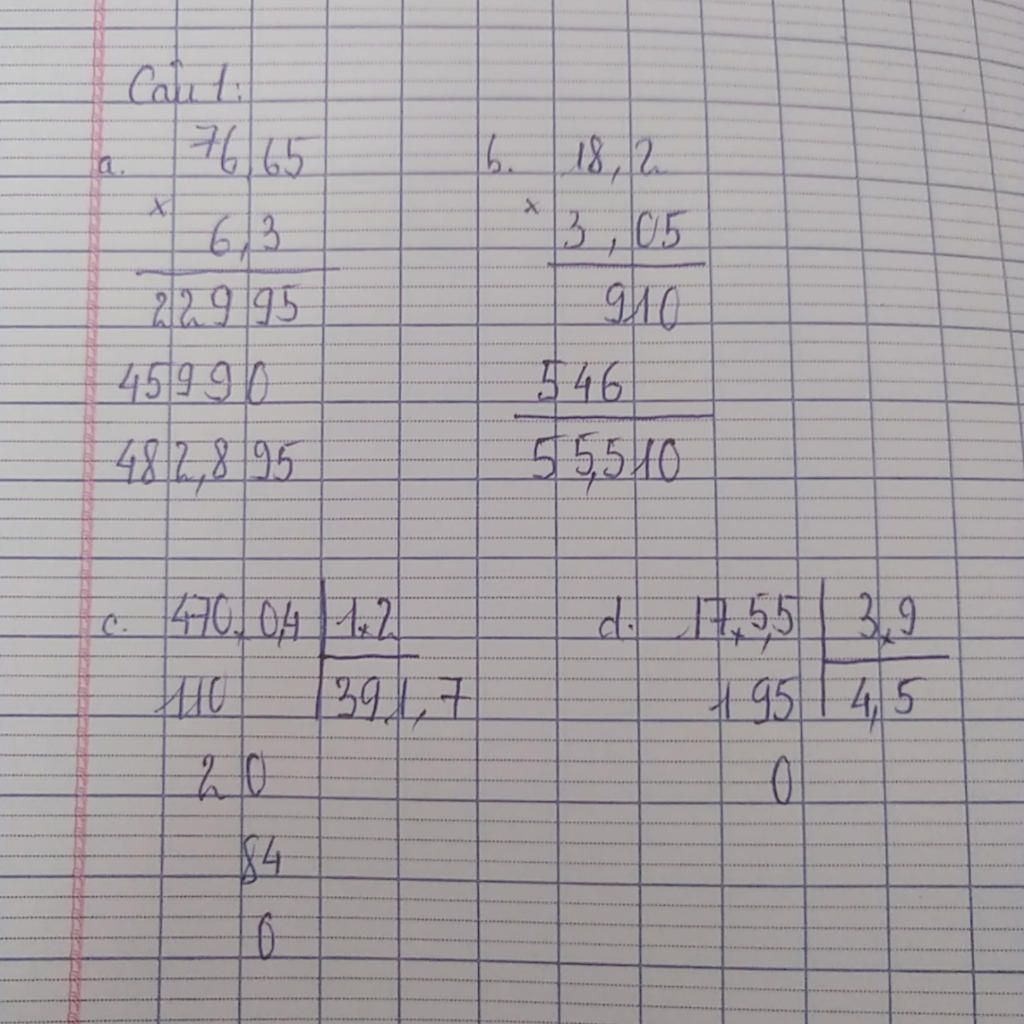 Câu 1:
a. 76,65
x
6,3
22995
45990
482,895
b. 18,2
x
3,05
910
546
55,510
c. 470,0,4 | 1,2
110 | 391,7
20
84
0
d. 17,5,5 | 3,9
195 | 4,5
0